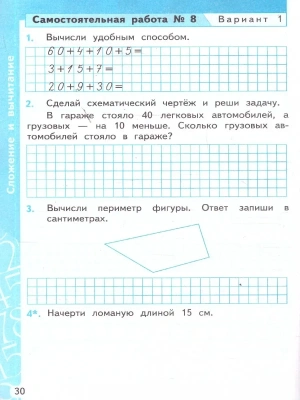 Самостоятельная работа № 8 Вариант 1
1. Вычисли удобным способом.
60+4+10+5=
3+15+7=
20+9+30=
2. Сделай схематический чертёж и реши задачу.
В гараже стояло 40 легковых автомобилей, а
грузовых — на 10 меньше. Сколько грузовых ав-
томобилей стояло в гараже?
3. Вычисли периметр фигуры. Ответ запиши в
сантиметрах.
4*. Начерти ломаную длиной 15 см.
Сложение и вычитание
30